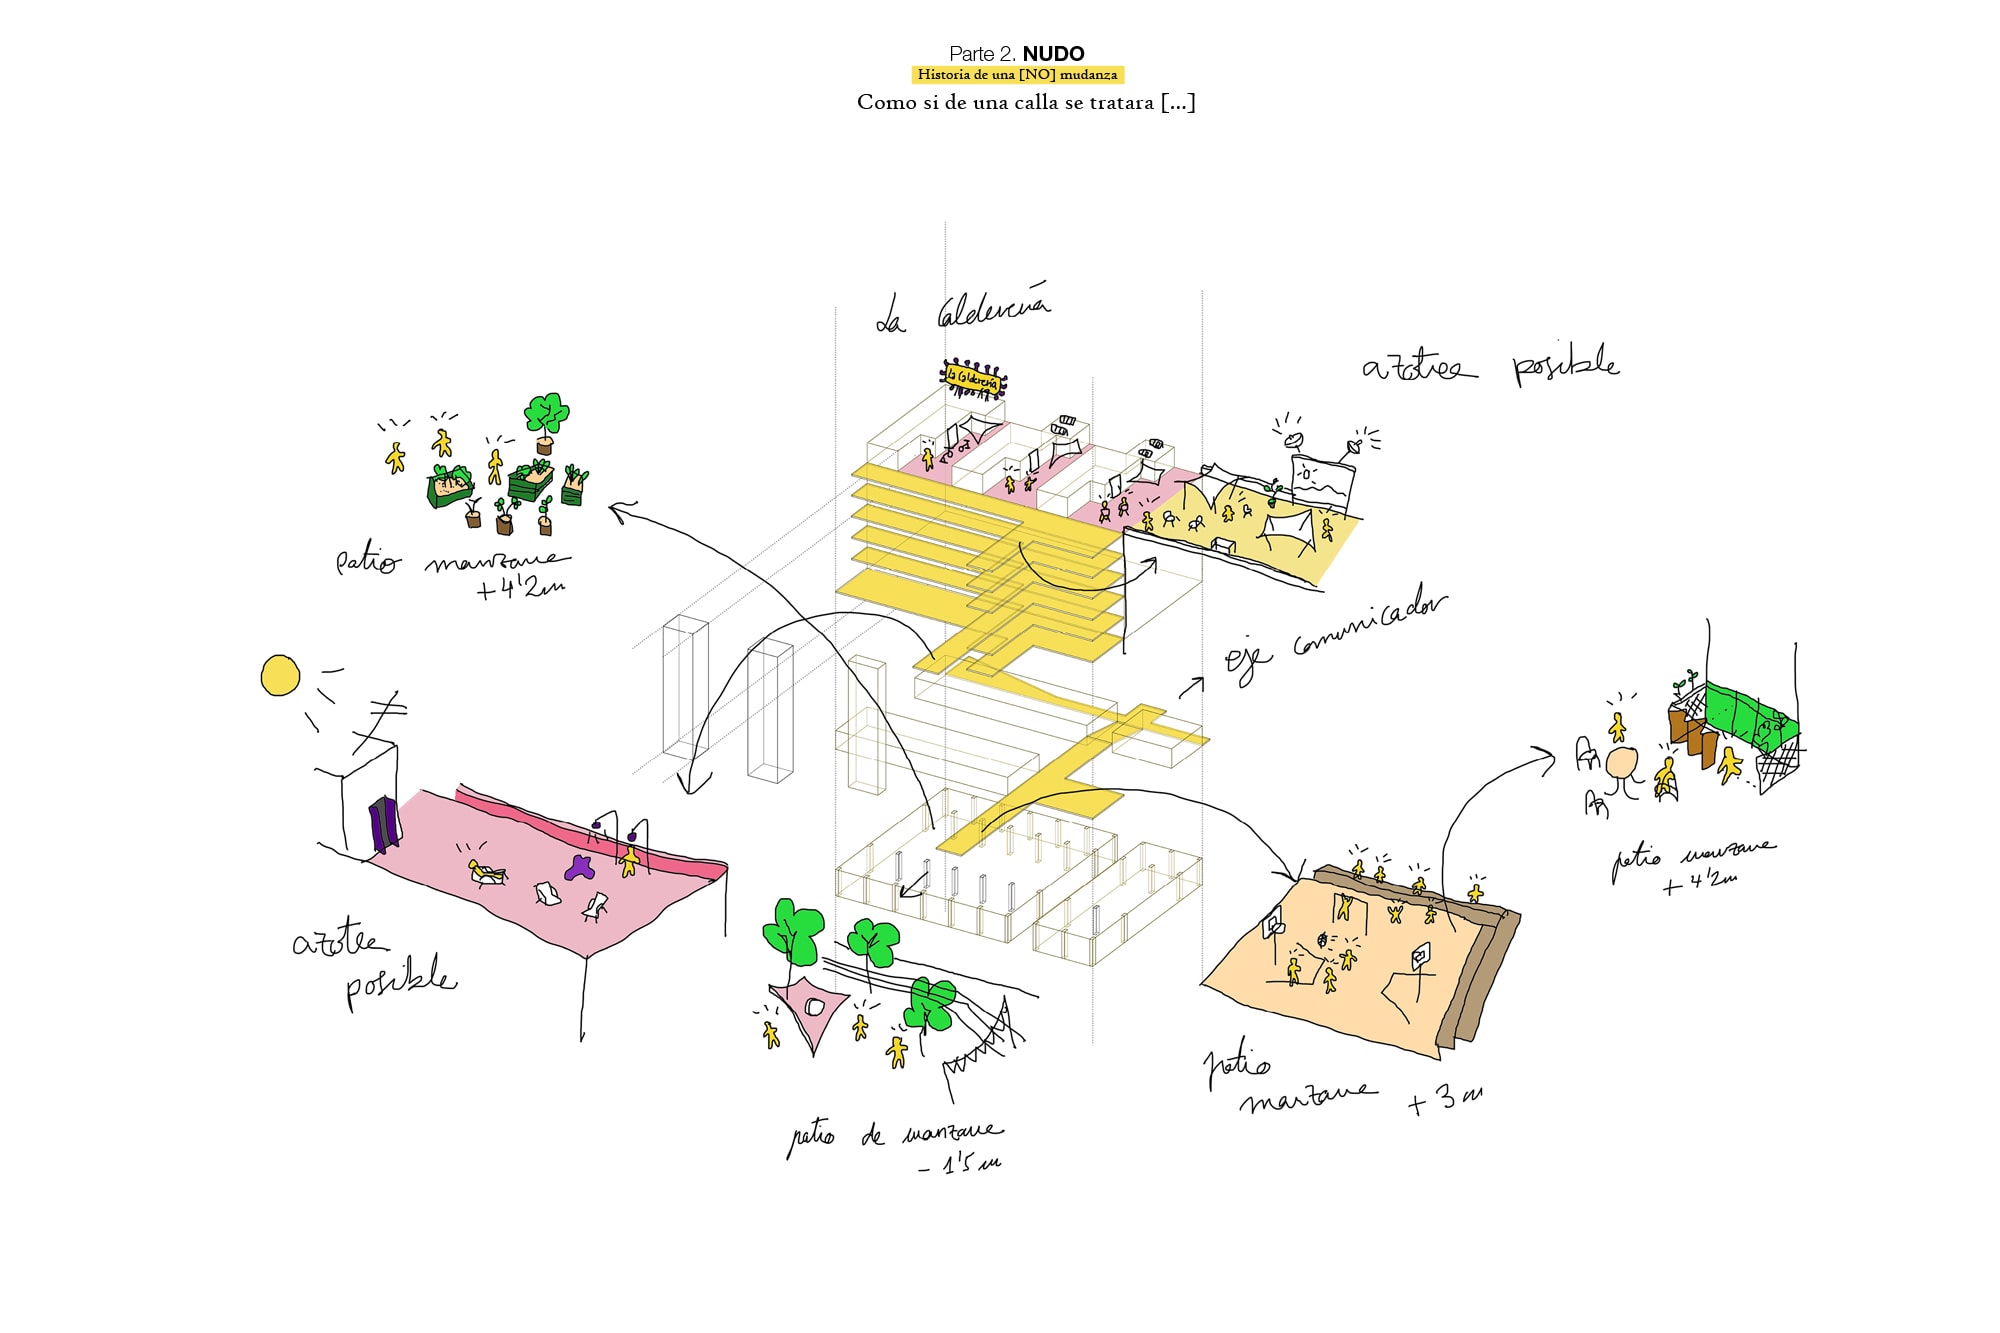 Parte 2. NUDO
Historia de una [NO] mudanza
Como si de una calla se tratara [...]
La Calderería
La Calderería
azotea posible
patio manzana
+4'2m
eje comunicador
azotea
posible
patio manzana
+ 4'2m
patio
manzana + 3m
patio de manzana
- 1'5m